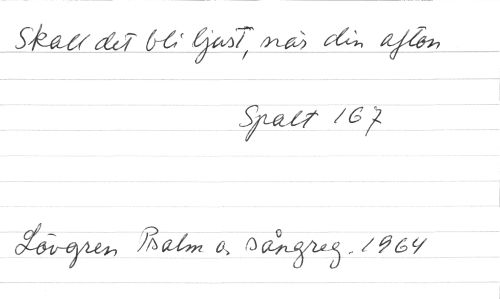 Skall det bli ljust, när din afton
Spalt 167
Lövgren Psalm o. sångreg. 1964